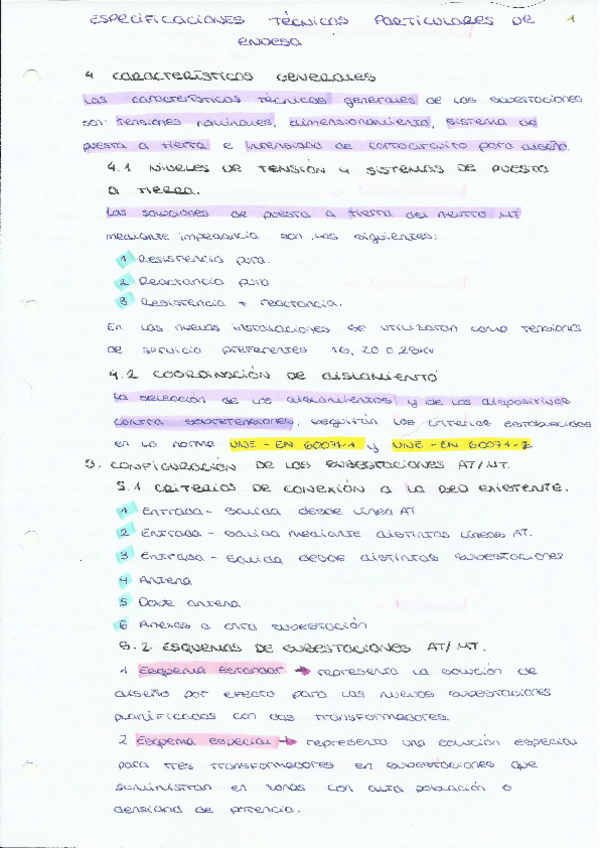 ESPECIFICACIONES TÉCNICAS PARTICULARES DE 1
ENDESA
4 CARACTERÍSTICAS GENERALES
Las características técnicas generales de las subestaciones
son: tensiones nominales, dimensionamiento, sistema de
puesta a tierra e intensidad de cortocircuito para diseño.
4.1 NIVELES DE TENSIÓN Y SISTEMAS DE PUESTA
A TIERRA.
Las soluciones de puesta a tierra del neutro MT
mediante impedancia son las siguientes:
1 Resistencia pura.
2 Reactancia pura
3 Resistencia + reactancia.
En las nuevas instalaciones se utilizarán como tensiones
de servicio preferentes 16, 20 o 25kV
4.2 COORDINACIÓN DE AISLAMIENTO
La selección de los aislamientos y de los dispositivos
contra sobretensiones, seguirán los criterios establecidos
en la norma UNE-EN 60071-1 y UNE-EN 60071-2
5. CONFIGURACIÓN DE LAS SUBESTACIONES AT/MT.
5.1 CRITERIOS DE CONEXIÓN A LA RED EXISTENTE.
1 Entrada-salida desde línea AT
2 Entrada-salida mediante distintas líneas AT.
3 Entrada-salida desde distintas subestaciones
4 Antena
5 Doble antena
6 Anexas a otra subestación
5.2 ESQUEMAS DE SUBESTACIONES AT/MT.
1 Esquema estándar → representa la solución de
diseño por efecto para las nuevas subestaciones
planificadas con dos transformadores.
2 Esquema especial → representa una solución especial
para tres transformadores en subestaciones que
suministran en zonas con alta población o
densidad de potencia.